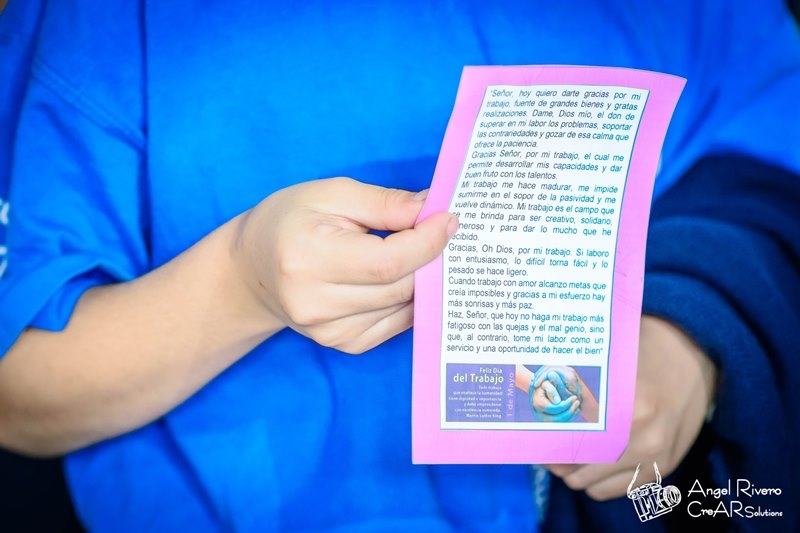 "Señor, hoy quiero darte gracias por mi
trabajo, fuente de grandes bienes y gratas
realizaciones. Dame, Dios mío, el don de
superar en mi labor los problemas, soportar
las contrariedades y gozar de esa calma que
ofrece la paciencia.
Gracias Señor, por mi trabajo, el cual me
permite desarrollar mis capacidades y dar
buen fruto con los talentos.
Mi trabajo me hace madurar, me impide
sumirme en el sopor de la pasividad y me
vuelve dinámico. Mi trabajo es el campo que
se me brinda para ser creativo, solidario,
neroso y para dar lo mucho que he
ecibido.
Gracias, Oh Dios, por mi trabajo. Si laboro
con entusiasmo, lo difícil torna fácil y lo
pesado se hace ligero.
Cuando trabajo con amor alcanzo metas que
creía imposibles y gracias a mi esfuerzo hay
más sonrisas y más paz.
Haz, Señor, que hoy no haga mi trabajo más
fatigoso con las quejas y el mal genio, sino
que, al contrario, tome mi labor como un
servicio y una oportunidad de hacer el bien"
Feliz Día
del Trabajo
Todo trabajo
que enaltece la humanidad
tiene dignidad e importancia
y debe emprenderse
con excelencia esmerada.
Martin Luther King
1 de Mayo
Angel Rivero
CreARSolutions